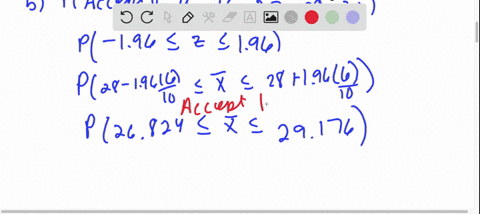 P(-1.96 ≤ z ≤ 1.96)
P(28-1.96(6)/10 ≤ x̄ ≤ 28+1.96(6)/10)
Accept
P(26.824 ≤ x̄ ≤ 29.176)